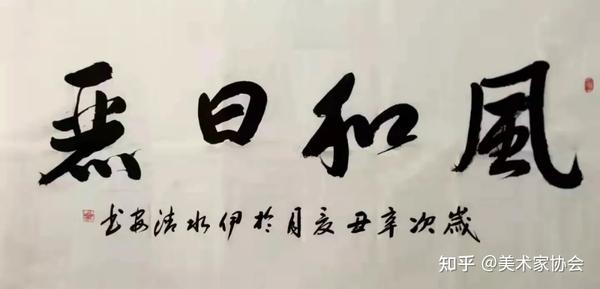 風和日麗
歲次辛丑夏月於伊水清安书
知乎 @美术家协会